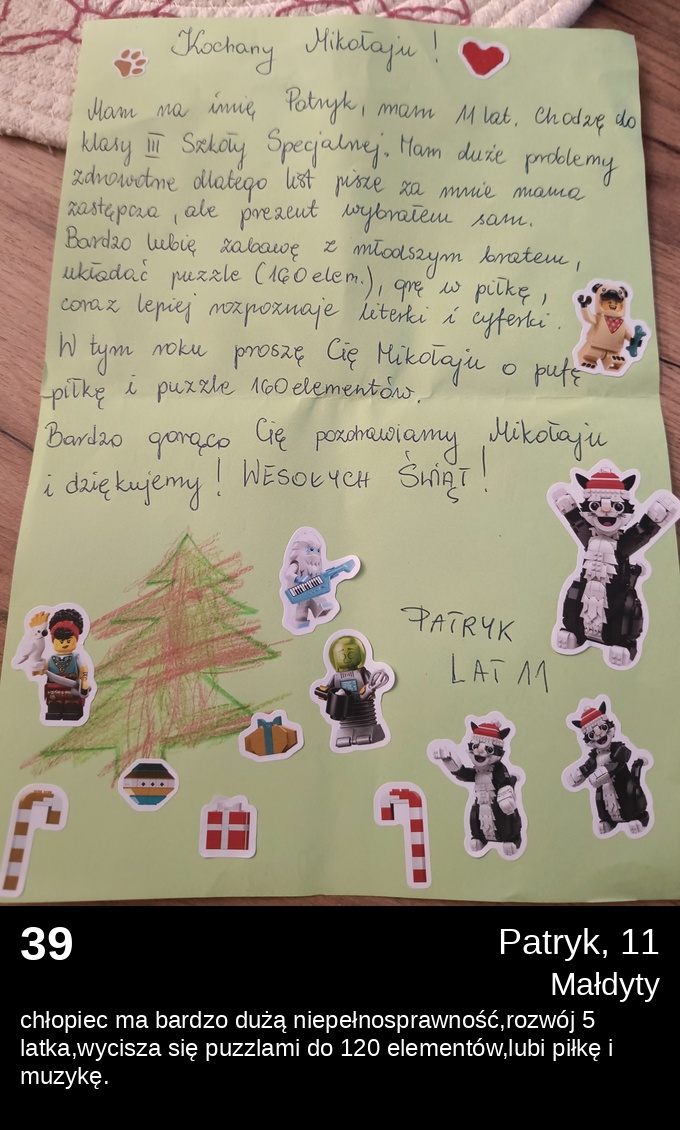 Kochany Mikołaju!
Mam na imię Patryk, mam 11 lat. Chodzę do
klasy III Szkoły Specjalnej. Mam duże problemy
zdrowotne dlatego list pisze za mnie mama
zastępcza, ale prezent wybrałem sam.
Bardzo lubię zabawę z młodszym bratem,
układać puzzle (160 elem.), grę w piłkę,
coraz lepiej rozpoznaje literki i cyferki.
W tym roku proszę Cię Mikołaju o pufę
piłkę i puzzle 160 elementów.
Bardzo gorąco Cię pozdrawiamy Mikołaju
i dziękujemy! WESOŁYCH ŚWIĄT!
PATRYK
LAT 11
39
Patryk, 11
Małdyty
chłopiec ma bardzo dużą niepełnosprawność,rozwój 5
latka,wycisza się puzzlami do 120 elementów,lubi piłkę i
muzykę.